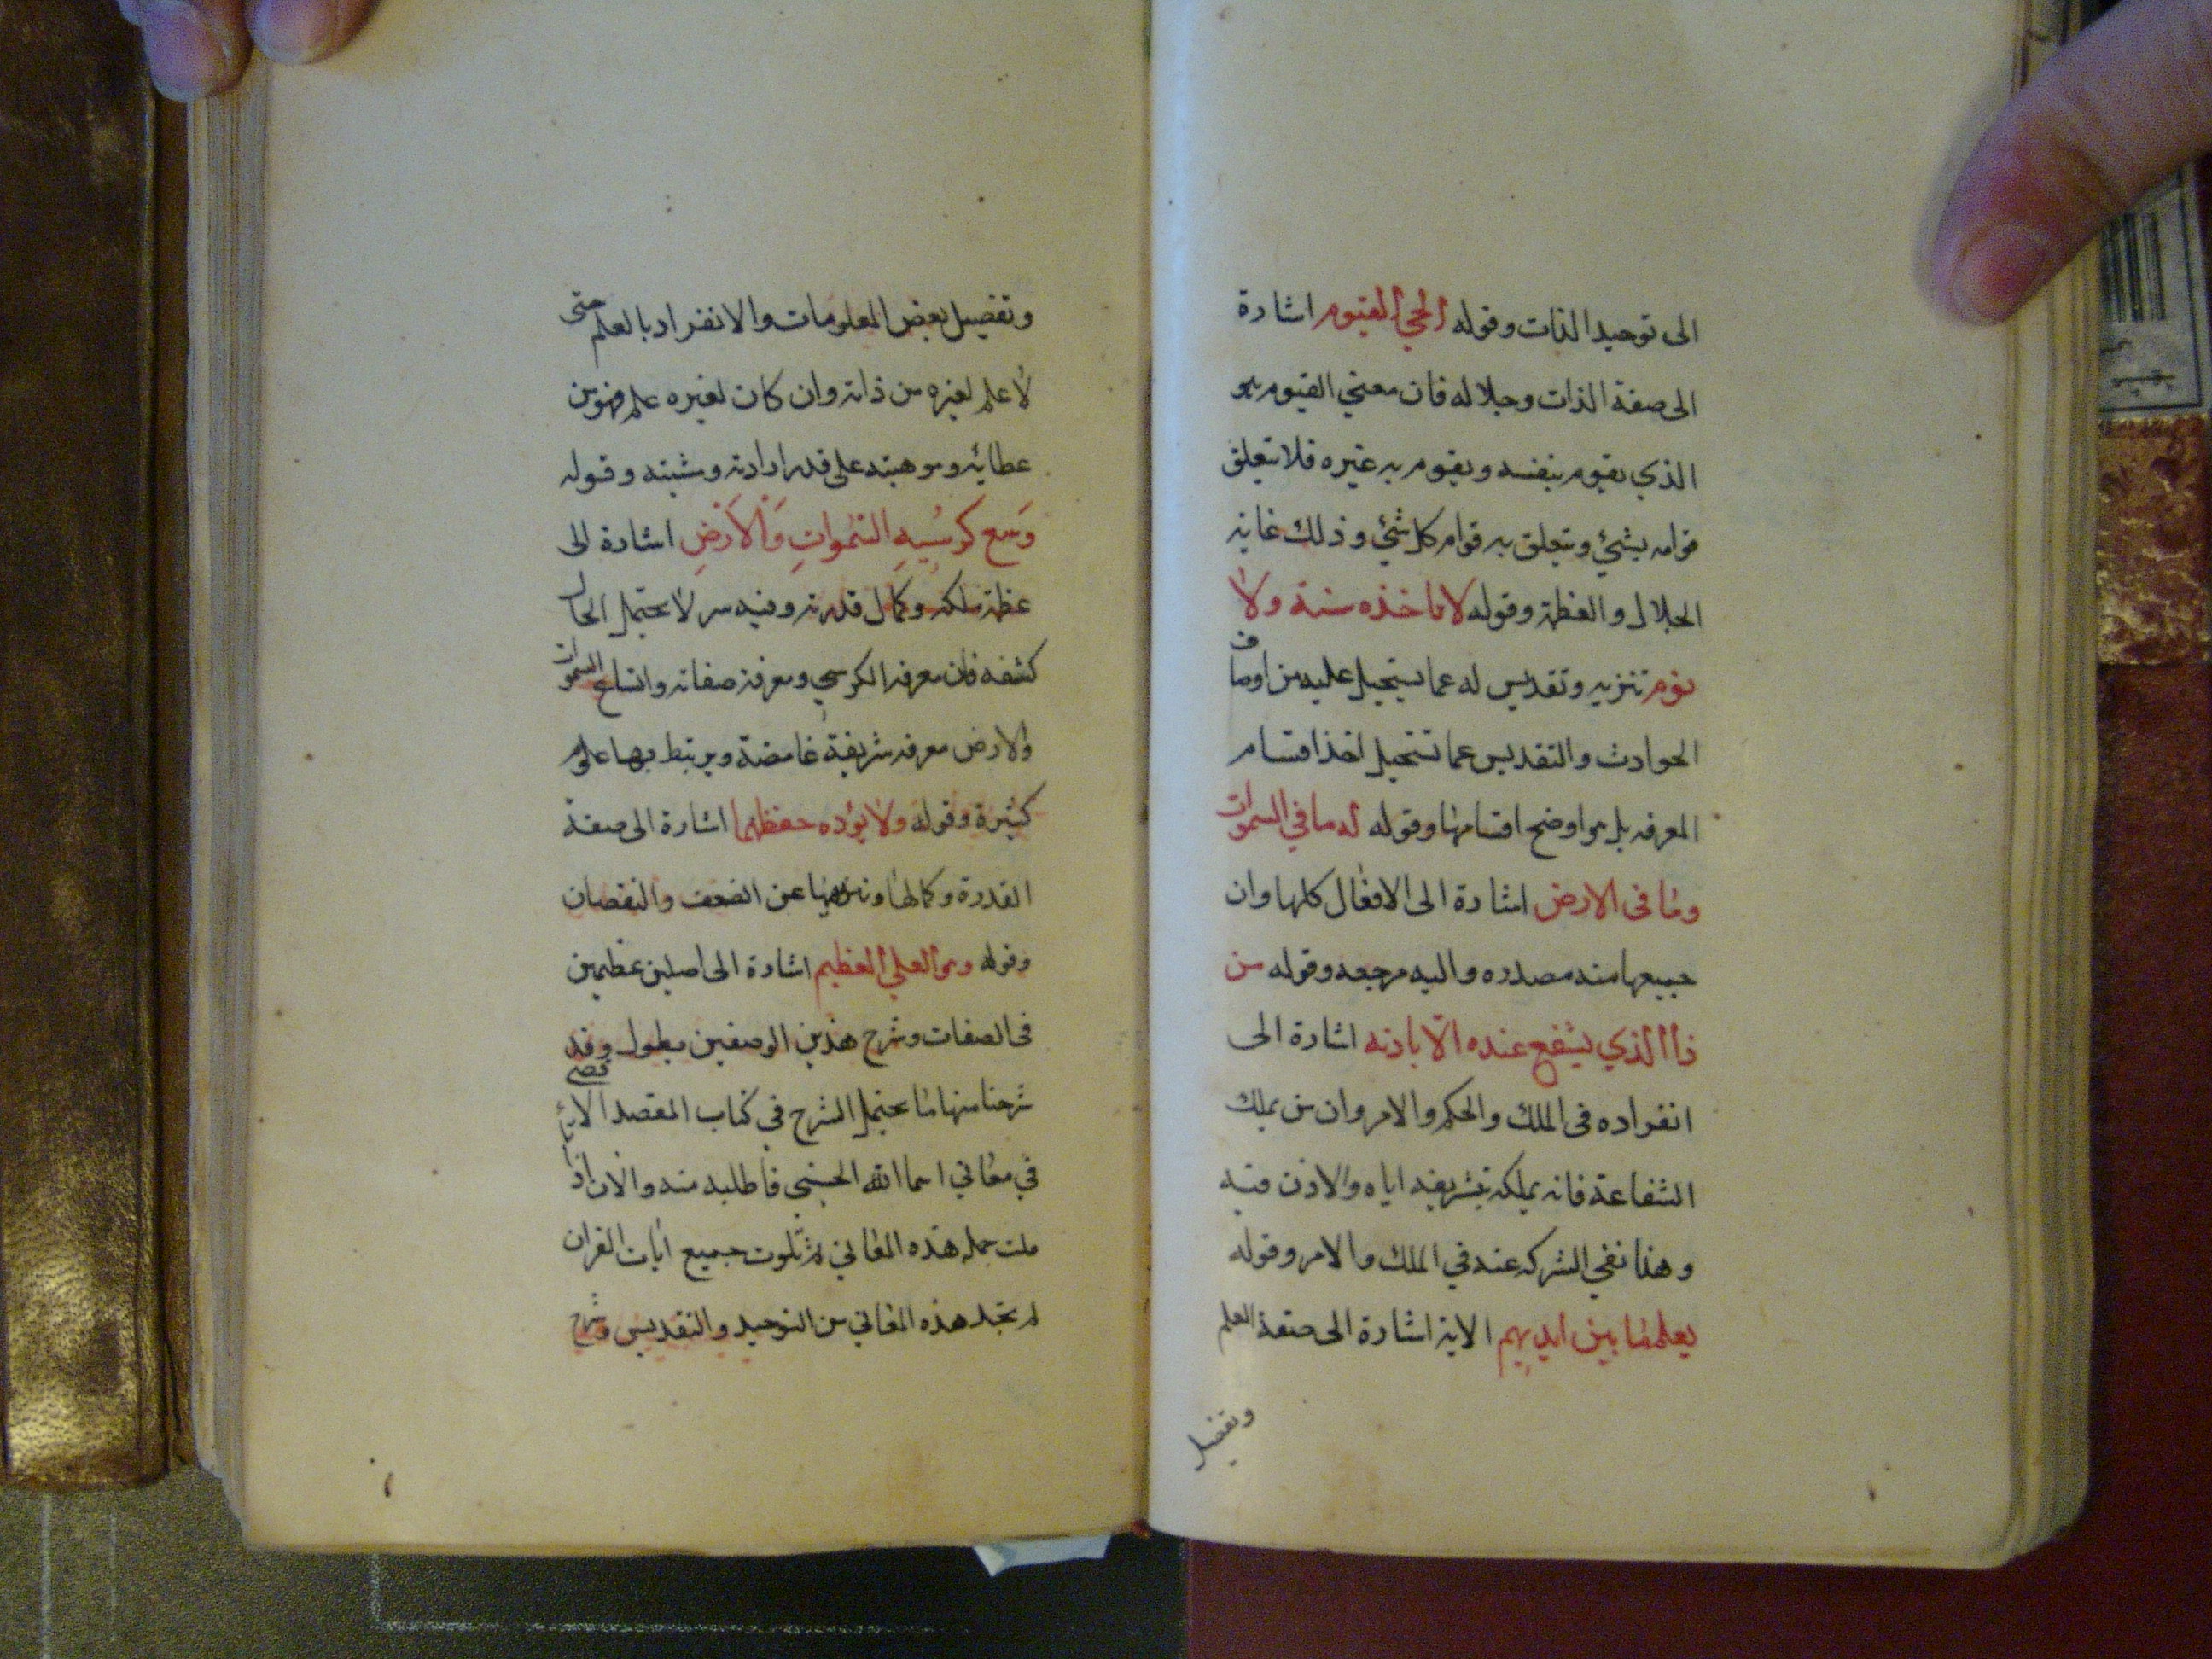 الى توحيد الذات وقوله الحي القيوم اشارة
الى صفة الذات وجلاله فان معني القيوم هو
الذي يقوم بنفسه ويقوم به غيره فلا تتعلق
قوامه بشئ ويتعلق به قوام كل شئ وذلك غاية
الجلال والعظمة وقوله لا تاخذه سنة ولا
نوم تنزيه وتقديس له عما يستحيل عليه من اوصاف
الحوادث والتقديس عما تستحيل احد اقسام
المعرفه بل هو اوضح اقسامها وقوله له ما في السموات
وما فى الارض اشارة الى الافعال كلها وان
جميعها منه مصدره واليه مرجعه وقوله من
ذا الذي يشفع عنده الا باذنه اشارة الى
انفراده فى الملك والحكم والامر وان من يملك
الشفاعة فانه يملكه بتشريفه اياه والاذن فيه
وهذا نفي الشركه عنه في الملك والامر وقوله
يعلم ما بين ايديهم الاية اشارة الى صفة العلم
وتفضيل
وتفضيل بعض المعلومات والانفراد بالعلم حتى
لا علم لغيره من ذاته وان كان لغيره علم فهو من
عطائه وموهبته على قدر ارادته ومشيته وقوله
وَسِع كرسُيهِ السَّمٰواتِ وَالْاَرَضِ اشارة الى
عظمة ملكه وكمال قدرته وفيه سر لا يحتمل الحال
كشفه فان معرفة الكرسي ومعرفة صفاته واتساع السموات
والارض معرفه شريفة غامضة ويرتبط بها علوم
كثيرة وقوله ولا يؤده حفظهما اشارة الى صفة
القدرة وكمالها وتنزيهها عن الضعف والنقصان
وقوله وهو العلي العظيم اشارة الى اصلين عظيمين
فى الصفات وشرح هذين الوصفين يطول وقد
شرحنا منها ما يحتمل الشرح في كتاب المقصد الاقصي
في معاني اسما الله الحسني فاطلبه منه والان اذا
ملت جمله هذه المعاني ثم تلوت جميع ايات القران
لم تجد هذه المعاني من التوحيد والتقديس وشرح